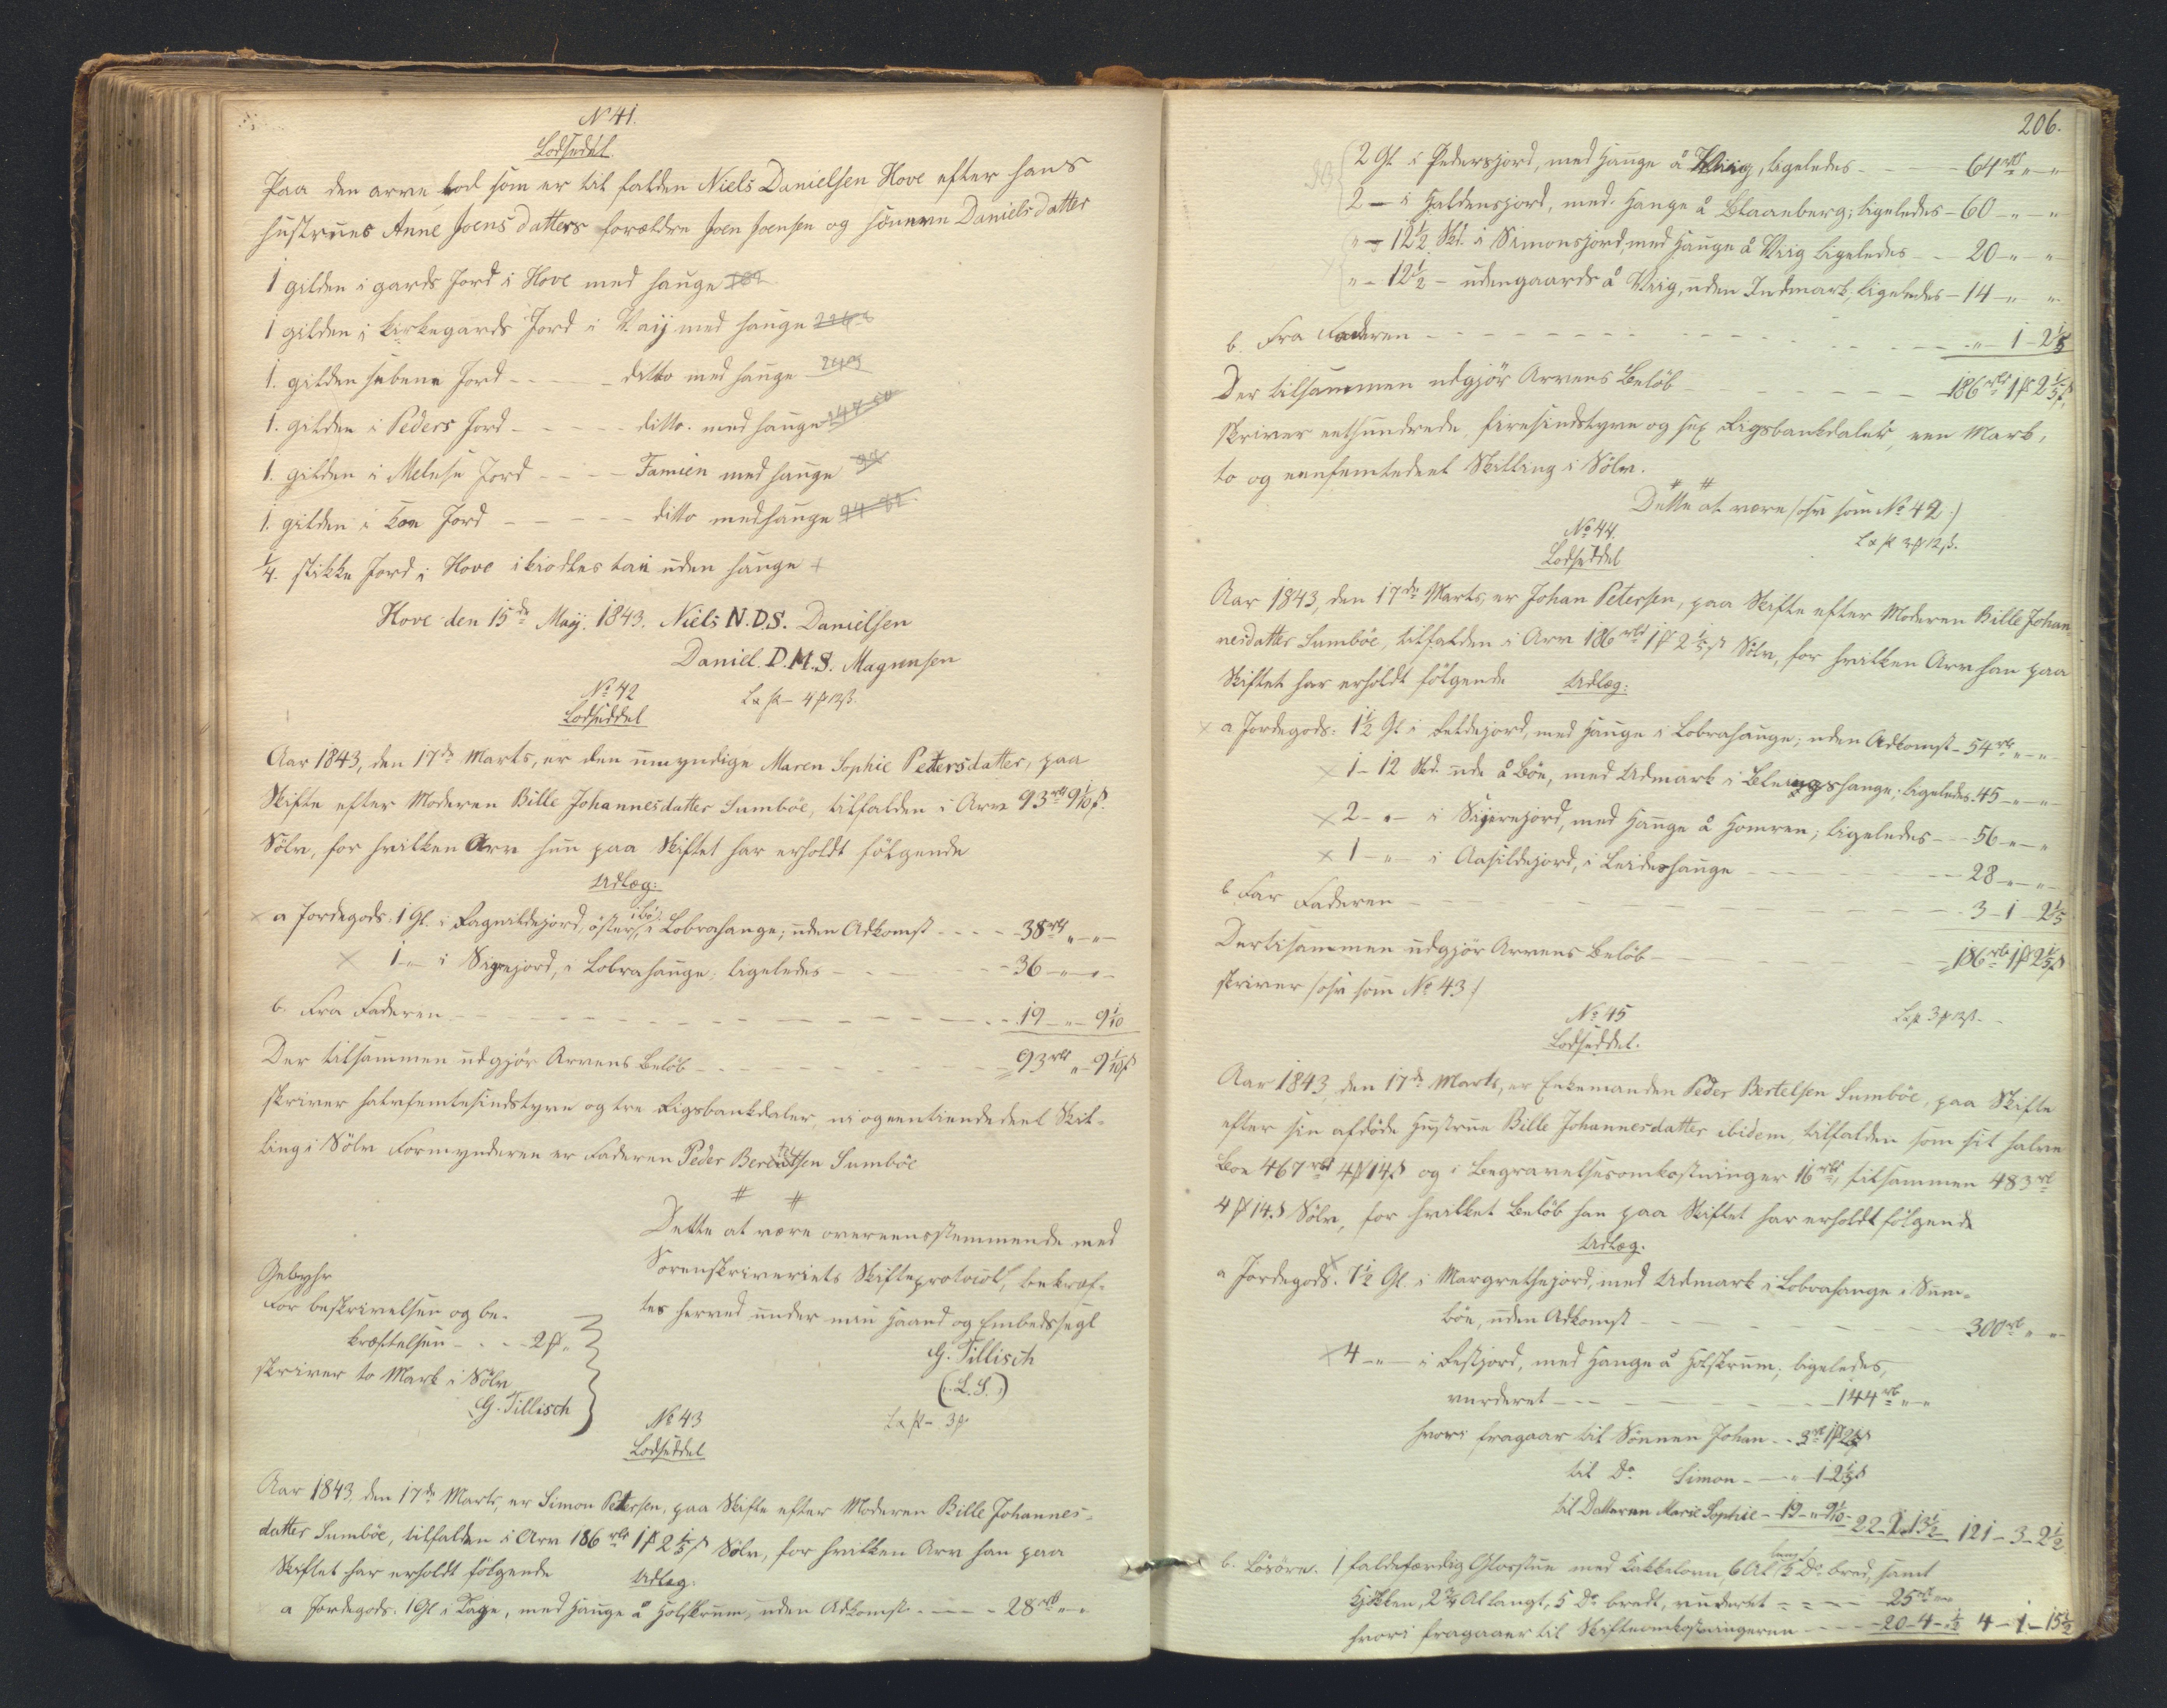 N 41.
Lodseddel.
Paa den arve lod som er til falden Niels Danielsen Hove efter hans
hustrues Anne Joens datters forældre Joen Joensen og Daniels datter
1 gilden i gards Jord i Hove med hauge
1 gilden i kirkegards Jord i Vaij med hauge
1. gilden Jord - - - - ditto med hauge
1. gilden i Peders Jord - - - - - ditto. med hauge
1. gilden i Melese Jord - - - Famien med hauge
1. gilden i Koa Jord - - - - - ditto med hauge
1/4. stikke Jord i Hove uden hauge +
Hove den 15de Maij. 1843. Niels N.D.S. Danielsen
Daniel. D.M.S. Magnusen
No 42
Lodseddel
Aar 1843, den 17de Marts, er den umyndige Maren Sophie Petersdatter, paa
Skifte efter Moderen Bille Johannesdatter Sumböe, tilfalden i Arv 93 rbd 9 1/10 s.
Sölv, for hvilken Arv hun paa Skiftet har erholdt fölgende
Udlæg:
× a Jordegods: 1 Gl. i Ragnildejord, öster i Böe, i Lobrahauge; uden Adkomst - - - - 38 rbd „ - „ -
× 1 - „ i Sigrejord, i Lobrahauge; ligeledes - - - - - 36 - „ - „ -
b. Fra Faderen - - - - - - - - - 19 - „ - 9 1/10
Der tilsammen udgjör Arvens Belöb - - - - - - - - 93 rbd „ - 9 1/10 s
skriver halvfemtesindstyve og tre Rigsbankdaler, ni og eentiendedeel Skil-
ling i Sölv Formynderen er Faderen Peder Bertelsen Sumböe
# #
Dette at være overeensstemmende med
Sorenskriveriets Skifteprotocol, bekræf-
tes herved under min Haand og Embedssegl
G. Tillisch
(L.S.)
Gebyhr
For beskrivelsen og be-
kræftelsen - - - 2 ß „
skriver to Mark i Sölv
G. Tillisch
No 43
Lodseddel
Aar 1843, den 17de Marts, er Simon Petersen, paa Skifte efter Moderen Bille Johannes-
datter Sumböe, tilfalden i Arv 186 rbd 1 ß 2 1/5 s Sölv, for hvilken Arv han paa
Skiftet har erholdt fölgende Udlæg.
a Jordegods. 1 Gl i Lage, med Hauge å Holskrum, uden Adkomst - - - 28 rb „ - „
206.
2 Gl i Pedersjord, med Hauge å Vaig, ligeledes - - - - 64 rb „ - „
2 - i Haldensjord, med. Hauge å Blaanberg; ligeledes - 60 - „ - „
„ - 12 1/2 Skd. i Simonsjord, med Hauge å Vaig ligeledes - - 20 - „ - „
„ - 12 1/2 - udengaards å Vaig, uden Indmark; ligeledes - 14 - „ „
b. Fra Faderen - - - - - - - - - „ - 1 - 2 1/5
Der tilsammen udgjör Arvens Belöb - - - - - - 186 rbd 1 ß 2 1/5 s,
skriver eethundrede, firesindstyve og sex Rigsbankdaler, een Mark,
to og eenfemtedeel Skilling i Sölv.
# #
Dette at være /: osv som No 42 :/
No 44.
Lodseddel
Aar 1843, den 17de Marts, er Johan Petersen, paa Skifte efter Moderen Bille Johan-
nesdatter Sumböe, tilfalden i Arv 186 rbd 1 ß 2 1/5 s Sölv, for hvilken Arv han paa
Skiftet har erholdt fölgende Udlæg:
× a Jordegods: 1 1/2 Gl i Feldejord, med Hauge i Lobrahauge; uden Adkomst - 54 rb „ - „
× 1 - 12 Skd. ude å Böe, med Udmark i hauge; ligeledes 45 - „ - „
× 2 - „ - i Sigirejord, med Hauge å Homren; ligeledes - - 56 - „ - „
× 1 - „ - i Aasildejord, i Leideshauge - - - - - - 28 - „ - „
b Far Faderen - - - - - - - - - 3 - 1 - 2 1/5
Dertisammen udgjör Arvens Belöb - - - - - 186 rb 1 ß 2 1/5 s
skriver /: osv som No 43 :/
No 45
Lodseddel.
Aar 1843, den 17de Marts, er Enkemanden Peder Bertelsen Sumböe, paa Skifte
efter sin afdöde Hustrue Bille Johannesdatter ibidem, tilfalden som sit halve
Boe 467 rbd 4 ß 14 s og i Begravelsesomkostninger 16 rbd, tilsammen 483 rb
4 ß 14 s Sölv, for hvilket Belöb han paa Skiftet har erholdt fölgende
Udlæg.
a Jordegods. × 7 1/2 Gl. i Margrethejord, med Udmark i Lobrahauge i Sum-
böe, uden Adkomst - - - - - - - - 300 rb „ - „
× 4 - „ - i Festjord, med Hauge å Holskrum; ligeledes,
vurderet - - - - - - - - 144 rb „ - „
hvori fragaar til Sönnen Johan - - 3 rb 1 ß 2 1/5 s
til Do Simon - - „ - 1 - 2 1/5 s
til Datteren Marie Sophie - 19 - „ 9 1/10 - 22 - 2 - 13 1/2 121 - 3 - 2 1/2
b. Lösöre. 1 faldefærdig Glasstue med Kakkelovn, 6 Al lang, 5 Do bred, samt
Kjökken, 2 3/4 Al langt, 5 Do bredt, vurderet - - - 25 rb „ „
hvori fragaaer til Skifteomkostningerne - - - 20 - 4 - 1/2 4 - 1 - 15 1/2